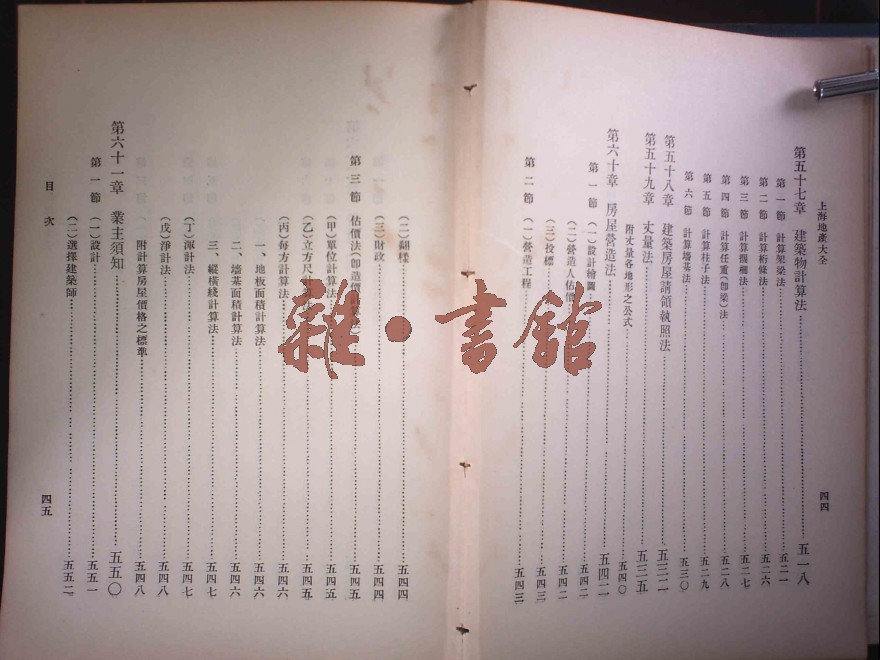 上海地產大全
四四
第五十七章 建築物計算法……五一八
第一節 計算架梁法……五二一
第二節 計算桁條法……五二六
第三節 計算擱柵法……五二七
第四節 計算任重(卽梁)法……五二八
第五節 計算柱子法……五二九
第六節 計算墻基法……五三〇
第五十八章 建築房屋請領執照法……五三二
第五十九章 丈量法……五三五
附丈量各地形之公式……五四〇
第六十章 房屋營造法……五四二
第一節 (一)設計繪圖……五四二
(二)營造人估價……五四二
(三)投標……五四三
第二節 (一)營造工程……五四三
(二)翻樣……五四四
(三)財政……五四四
第三節 估價法(卽造價計算法)……五四五
(甲)單位計算法……五四五
(乙)立方尺計算法……五四五
(丙)每方計算法……五四六
一、地板面積計算法……五四六
二、墻基面積計算法……五四六
三、縱橫綫計算法……五四七
(丁)渾計法……五四七
(戊)淨計法……五四八
附計算房屋價格之標準……五四八
第六十一章 業主須知……五五〇
第一節 (一)設計……五五一
(二)選擇建築師……五五二
目次
四五
雜·書館